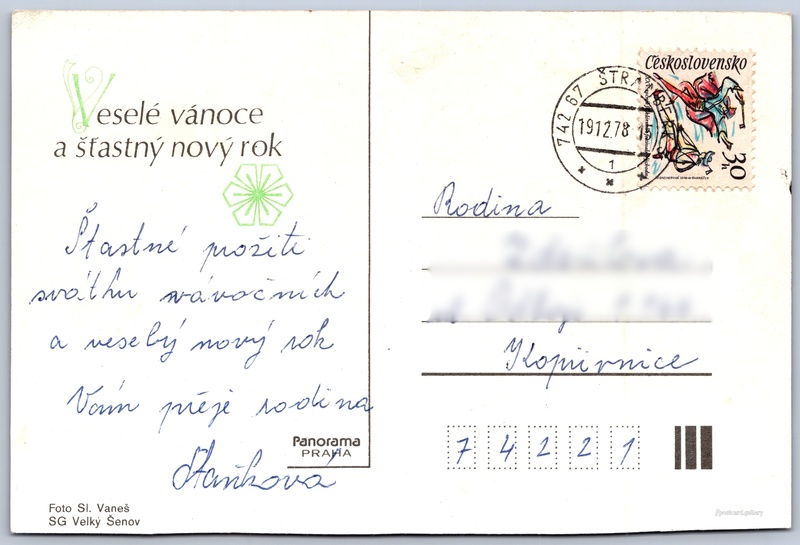 Veselé vánoce
a šťastný nový rok
Šťastné prožití
svátků vánočních
a veselý nový rok
Vám přeje rodina
Staňková
Panorama
PRAHA
Foto Sl. Vaneš
SG Velký Šenov
Československo
30h
742 67 ŠTRAMB
19.12.78-15
1
Rodina
Kopřivnice
74221